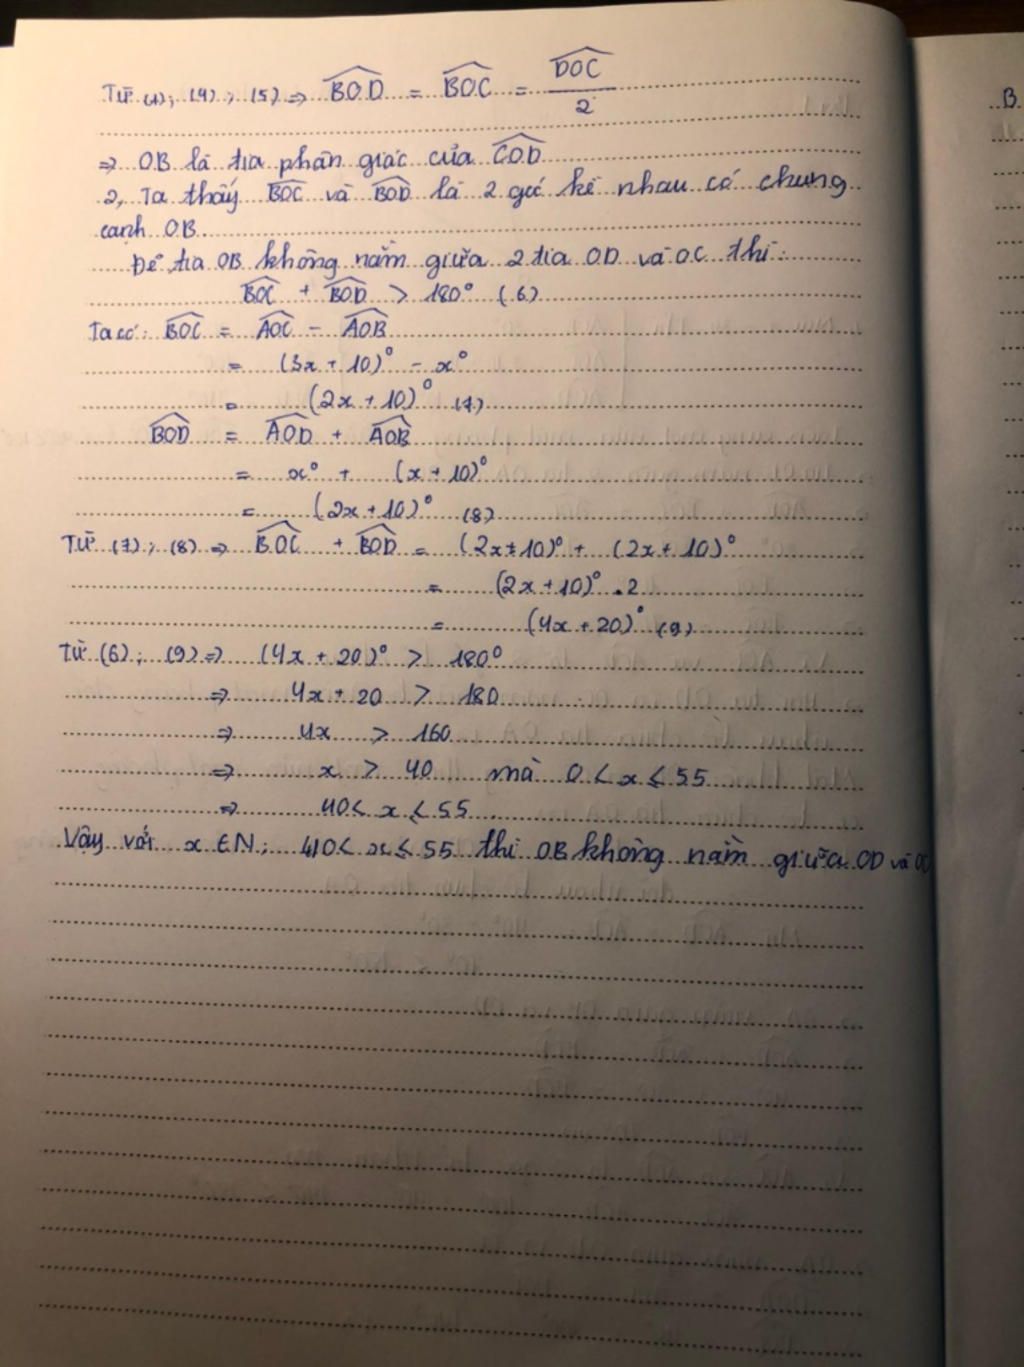 Từ (1); (4); (5) ⇒ BOD = BOC = DOC/2
⇒ OB là tia phân giác của COD
2, Ta thấy BOC và BOD là 2 góc kề nhau có chung
cạnh OB.
Để tia OB không nằm giữa 2 tia OD và OC thì:
BOC + BOD > 180° (6)
Ta có: BOC = AOC - AOB
= (3x + 10)° - x°
= (2x + 10)° (7)
BOD = AOD + AOB
= x° + (x + 10)°
= (2x + 10)° (8)
Từ (7); (8) ⇒ BOC + BOD = (2x + 10)° + (2x + 10)°
= (2x + 10)° . 2
= (4x + 20)° (9)
Từ (6); (9) ⇒ (4x + 20)° > 180°
⇒ 4x + 20 > 180
⇒ 4x > 160
⇒ x > 40 mà 0 < x ≤ 55
⇒ 40 < x ≤ 55
Vậy với x ∈ N; 40 < x ≤ 55 thì OB không nằm giữa OD và OC
B